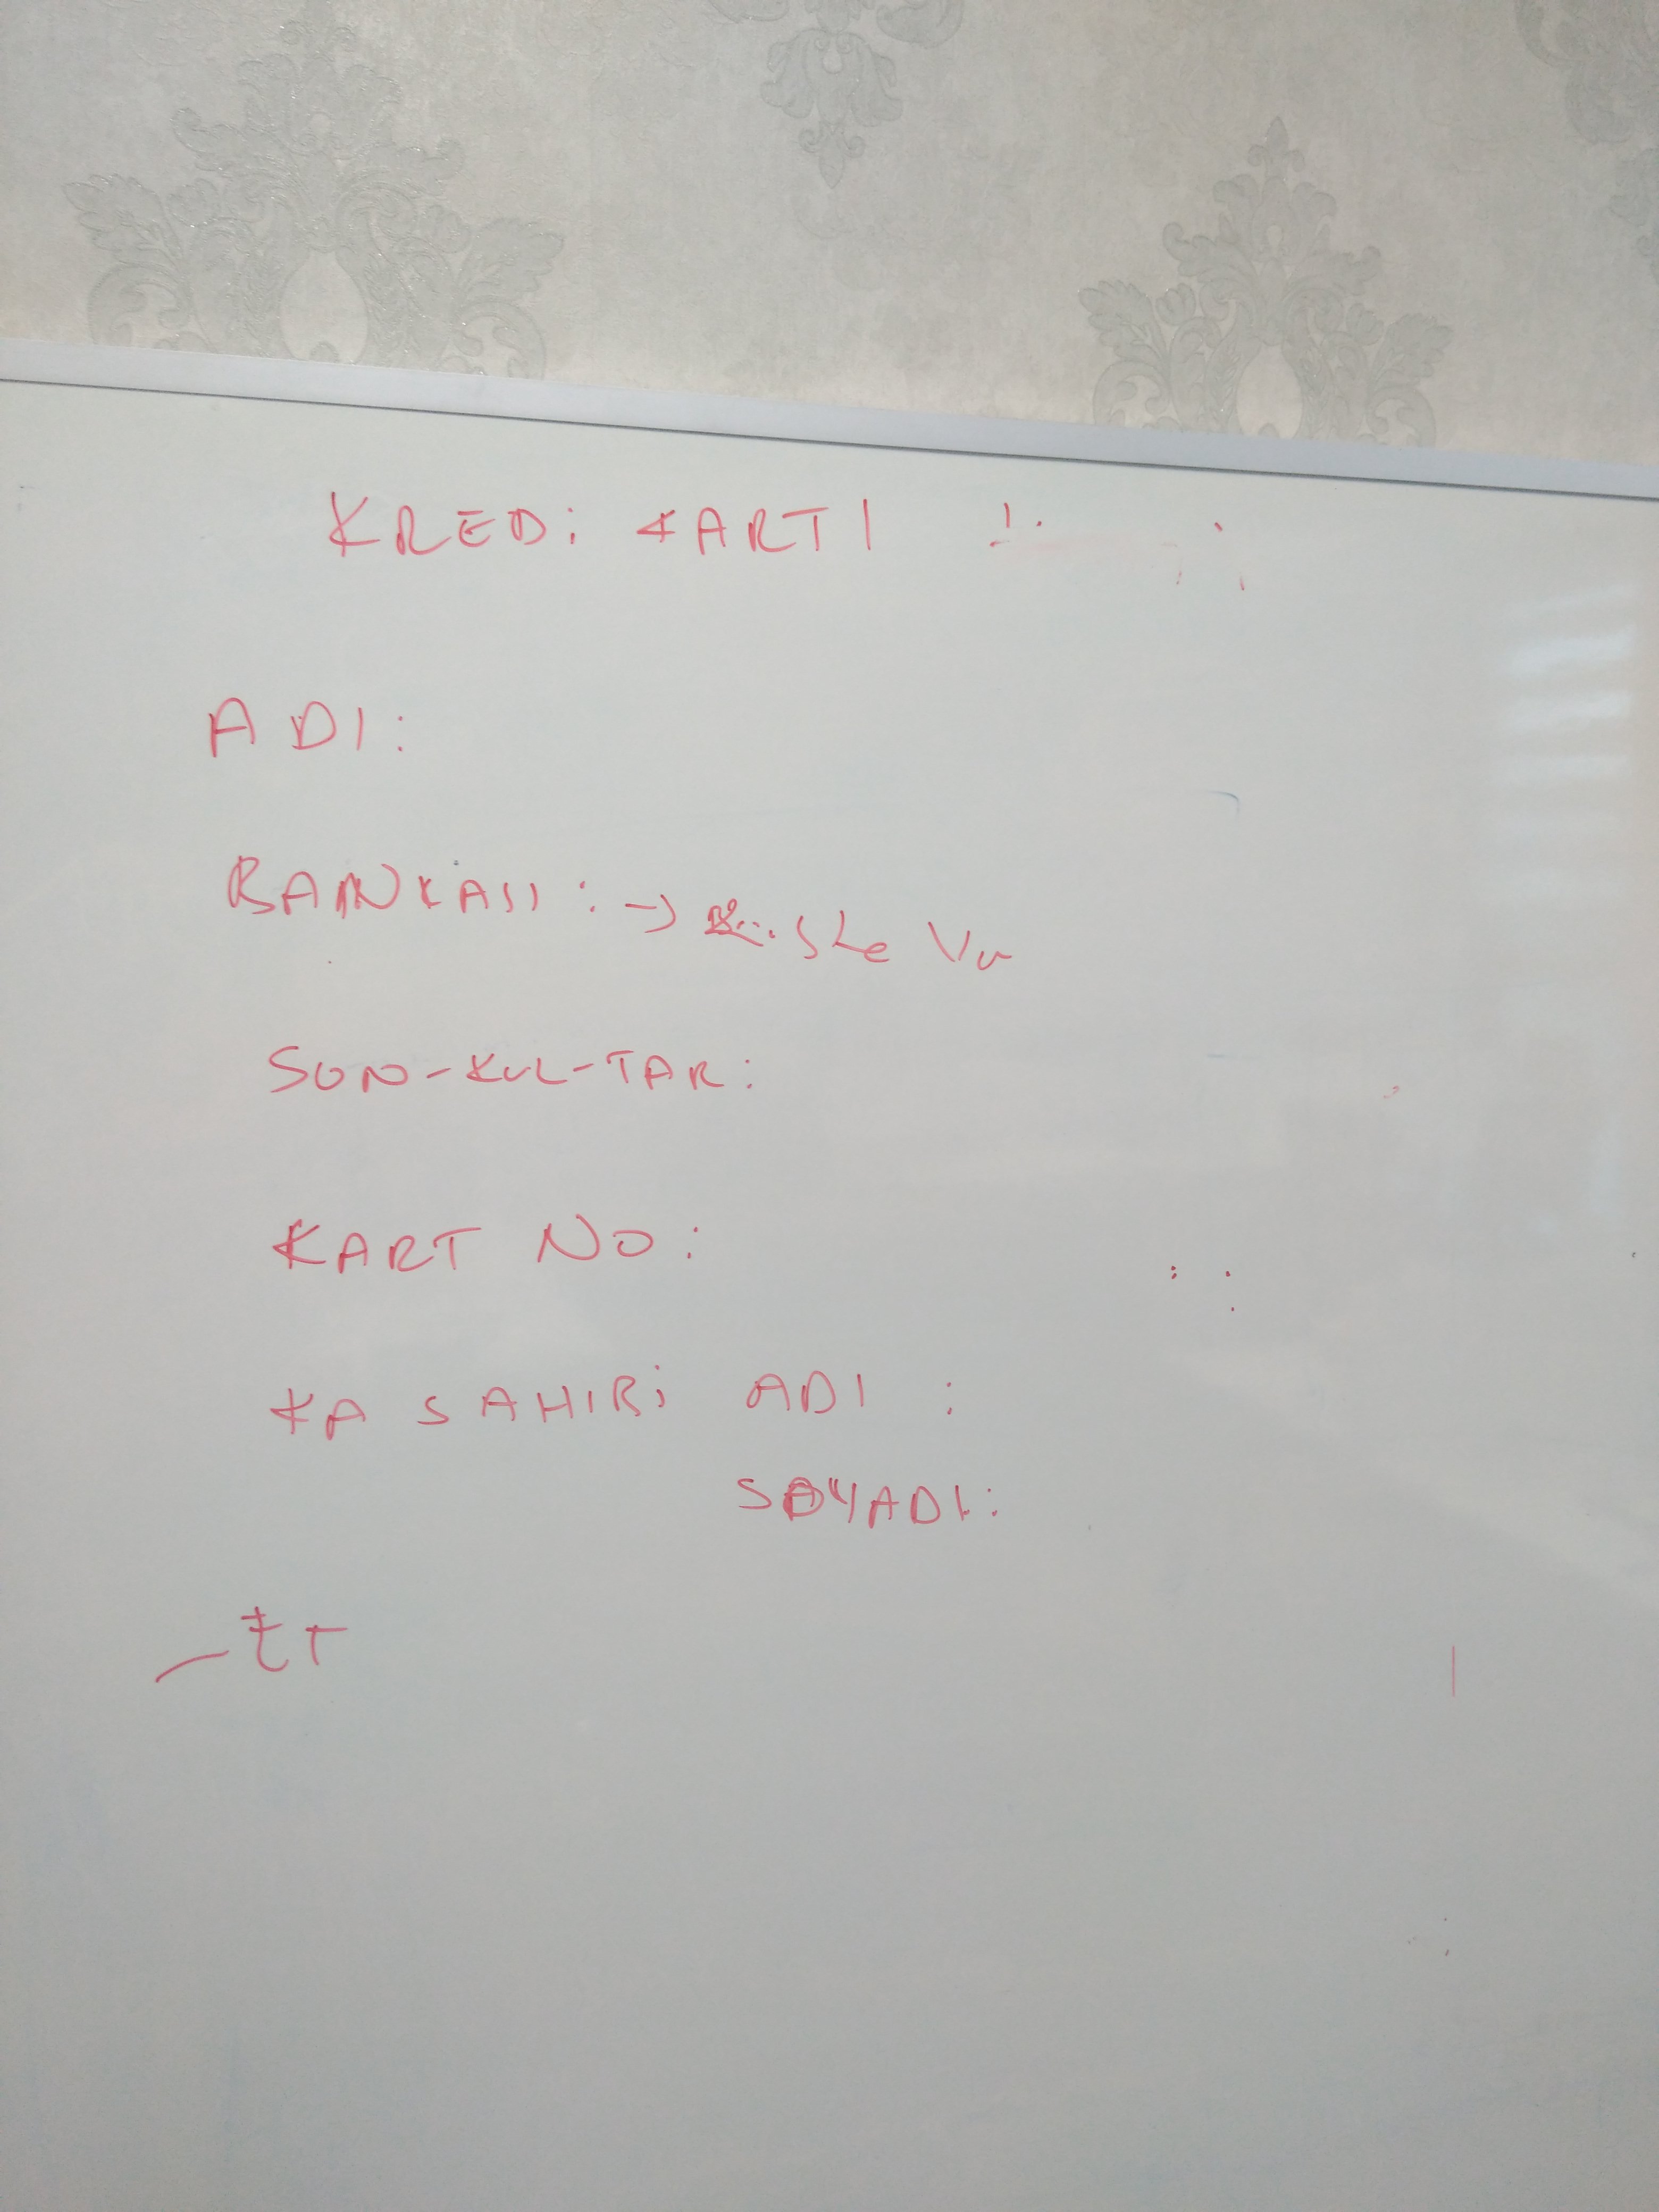 KREDİ KARTI
ADI:
BANKASI: →
SON-KUL-TAR:
KART NO:
KA SAHİBİ ADI :
SOYADI: